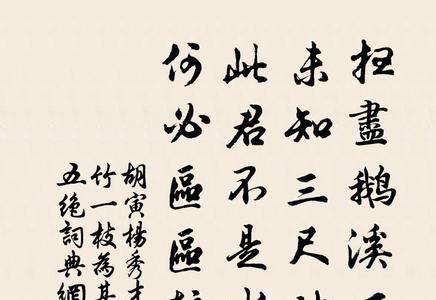 扫盡鵝溪
未知三尺
此君不是
何必區區
胡寅楊秀才
竹一枝為其
五絕詞典網